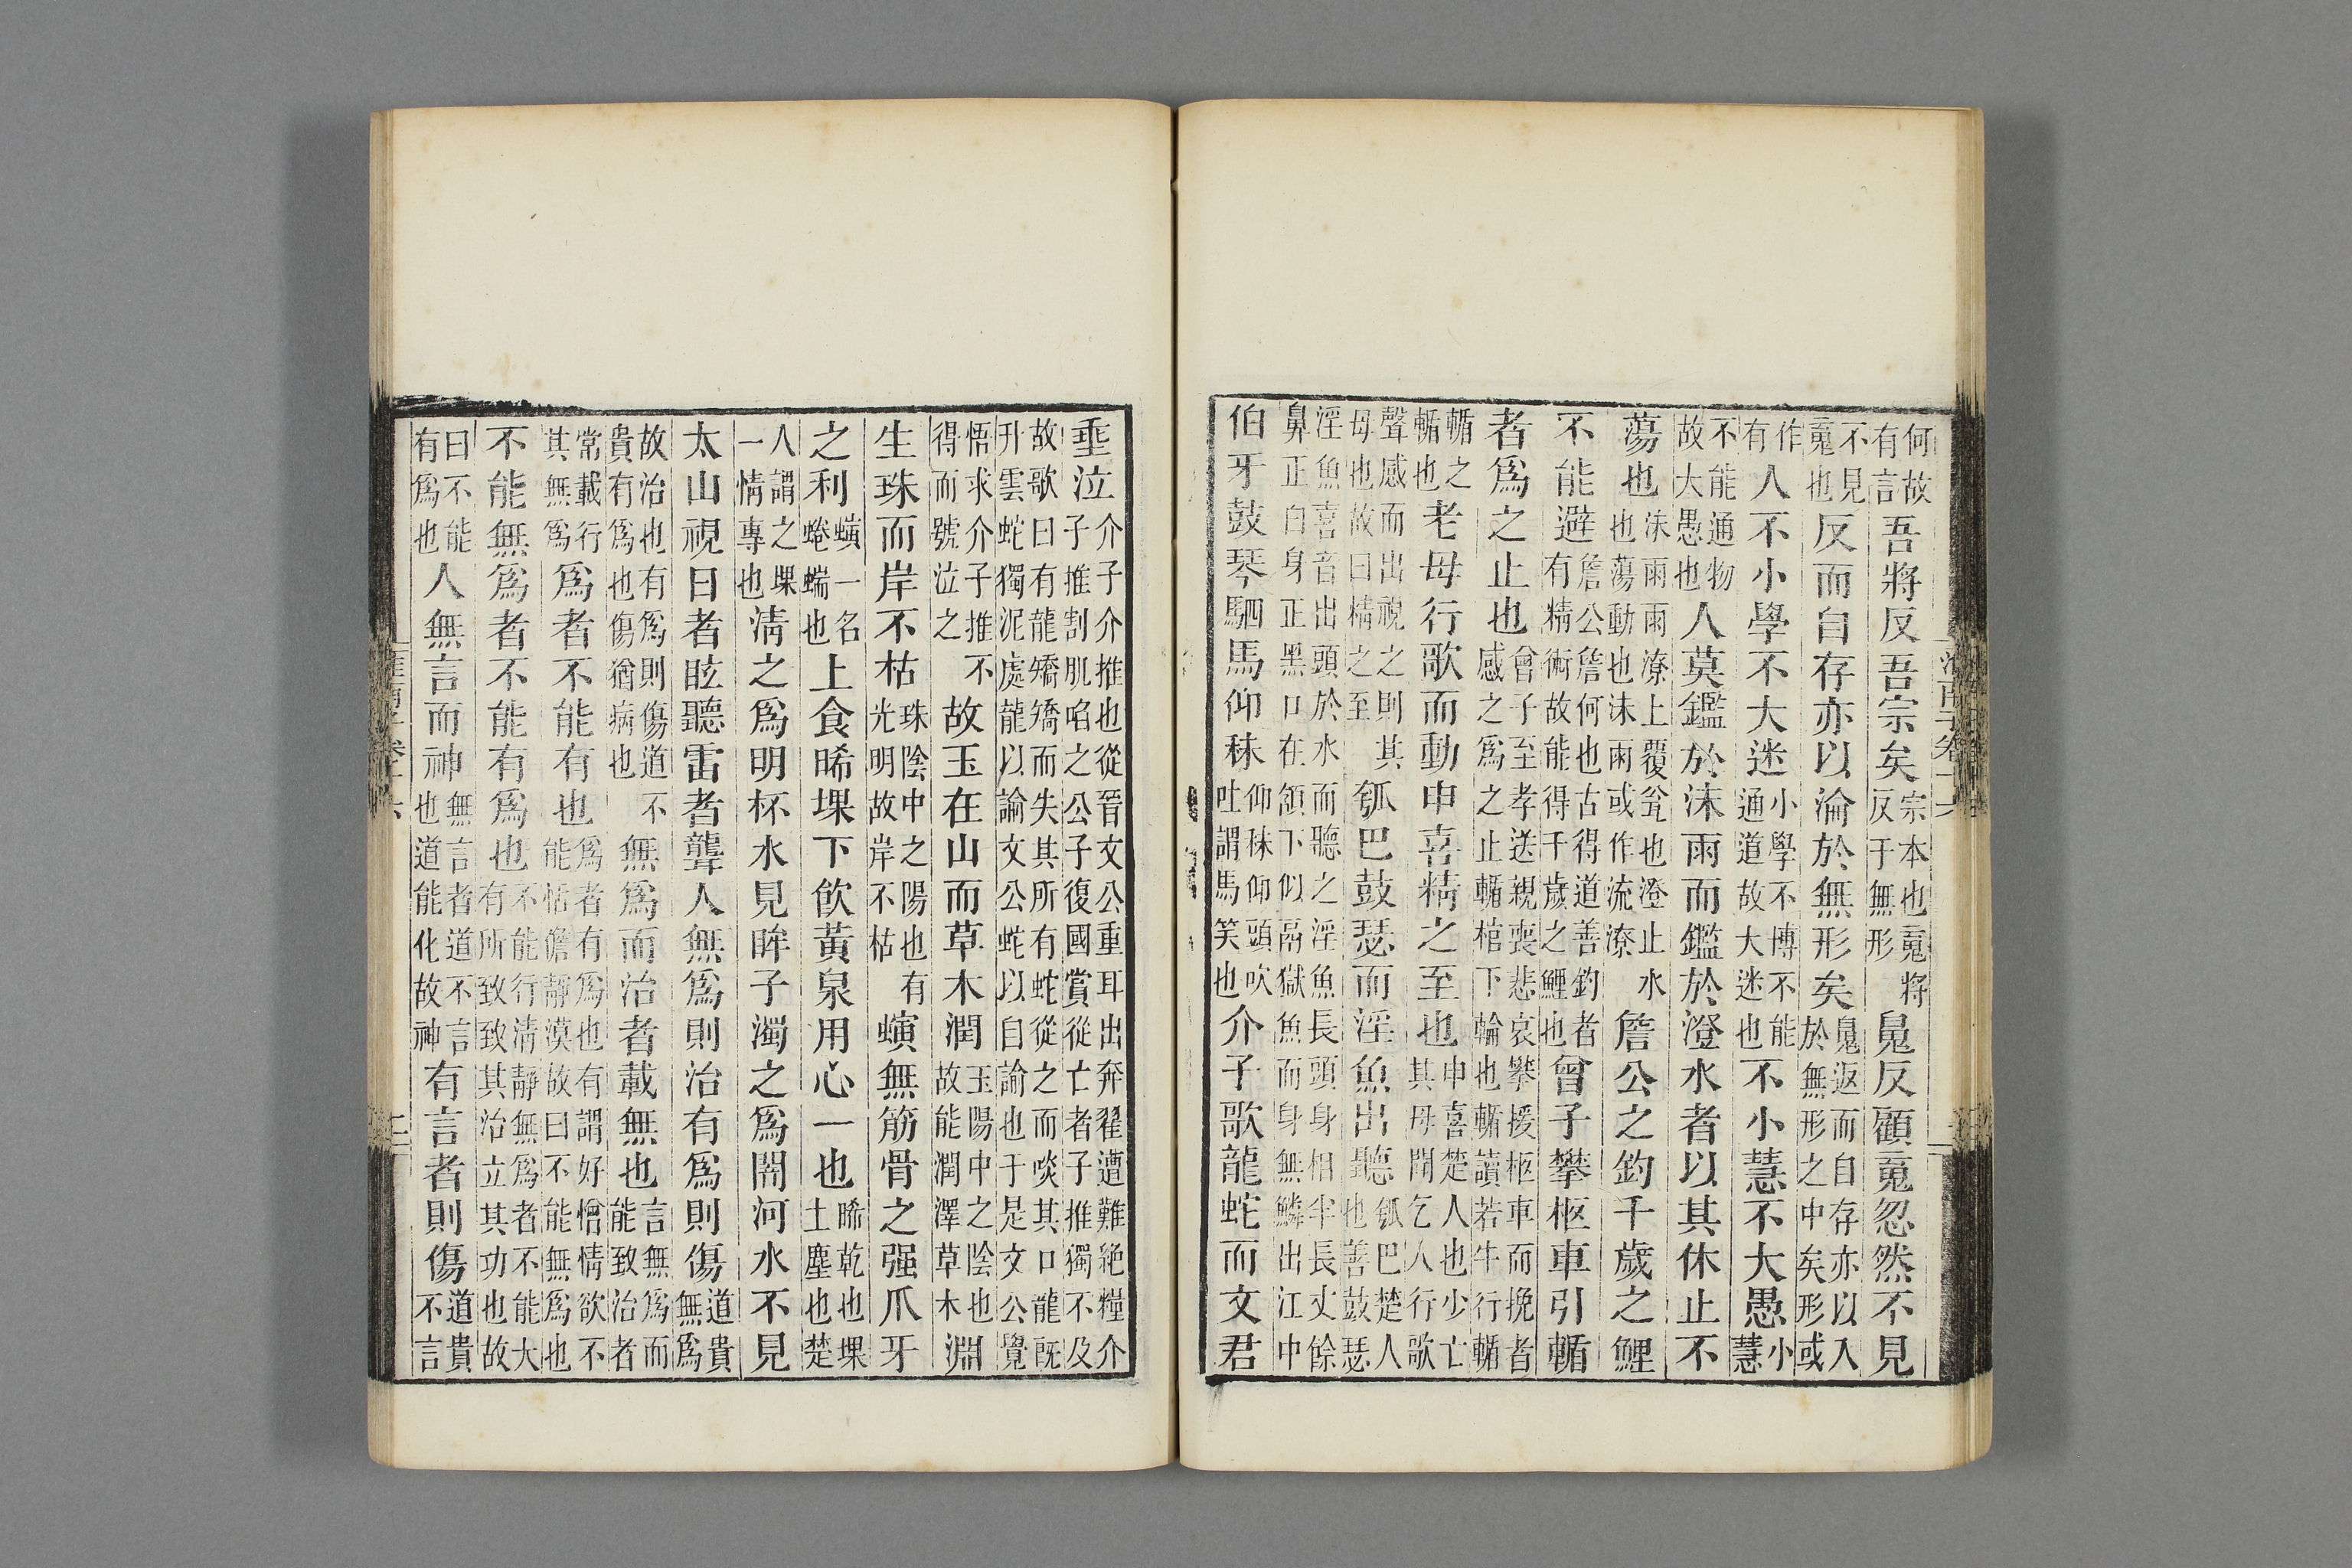 何故有言吾將反吾宗矣宗本也䰟將反于無形魄反顧䰟忽然不見
不見䰟也反而自存亦以淪於無形矣魄返而自存亦以入於無形之中矣形或
作有人不小學不大迷小學不博不能通道故大迷也不小慧不大愚小慧
不能通物故大愚也人莫鑑於沫雨而鑑於澄水者以其休止不
蕩也沫雨雨潦上覆瓮也澄止水也蕩動也沫雨或作流潦詹公之釣千歲之鯉
不能避詹公詹何也古得道善釣者有精術故能得千歲之鯉也曾子攀柩車引輴
者爲之止也曾子至孝送親喪悲哀攀援柩車而挽者感之爲之止輴棺下輪也輴讀若牛行輴
輴之輴也老母行歌而動申喜精之至也申喜楚人也少亡其母聞乞人行歌
聲感而出視之則其母也故曰精之至瓠巴鼓瑟而淫魚出聽瓠巴楚人也善鼓瑟
淫魚喜音出頭於水而聽之淫魚長頭身相半長丈餘鼻正白身正黑口在頷下似鬲獄魚而身無鱗出江中
伯牙鼓琴駟馬仰秣仰秣仰頭吹吐謂馬笑也介子歌龍蛇而文君
垂泣介子介推也從晉文公重耳出奔翟遭難絕糧介子推割肌啗之公子復國賞從亡者子推獨不及
故歌曰有龍矯矯而失其所有蛇從之而啖其口龍旣升雲蛇獨泥處龍以諭文公蛇以自諭也于是文公覺
悟求介子推不得而號泣之故玉在山而草木潤玉陽中之陰也故能潤澤草木淵
生珠而岸不枯珠陰中之陽也有光明故岸不枯螾無筋骨之强爪牙
之利螾一名蜷蝺也上食晞堁下飮黃泉用心一也晞乾也堁土塵也楚
人謂之堁一情專也清之爲明杯水見眸子濁之爲闇河水不見
太山視日者眩聽雷者聾人無爲則治有爲則傷道貴無爲
故治也有爲則傷道不貴有爲也傷猶病也無爲而治者載無也言無爲而能致治者
常載行其無爲爲者不能有也爲者有爲也有謂好憎情欲不能恬澹靜漠故曰不能無爲也
不能無爲者不能有爲也不能行清靜無爲者不能大有所致致其治立其功也故
曰不能有爲也人無言而神無言者道不言也道能化故神有言者則傷道貴不言